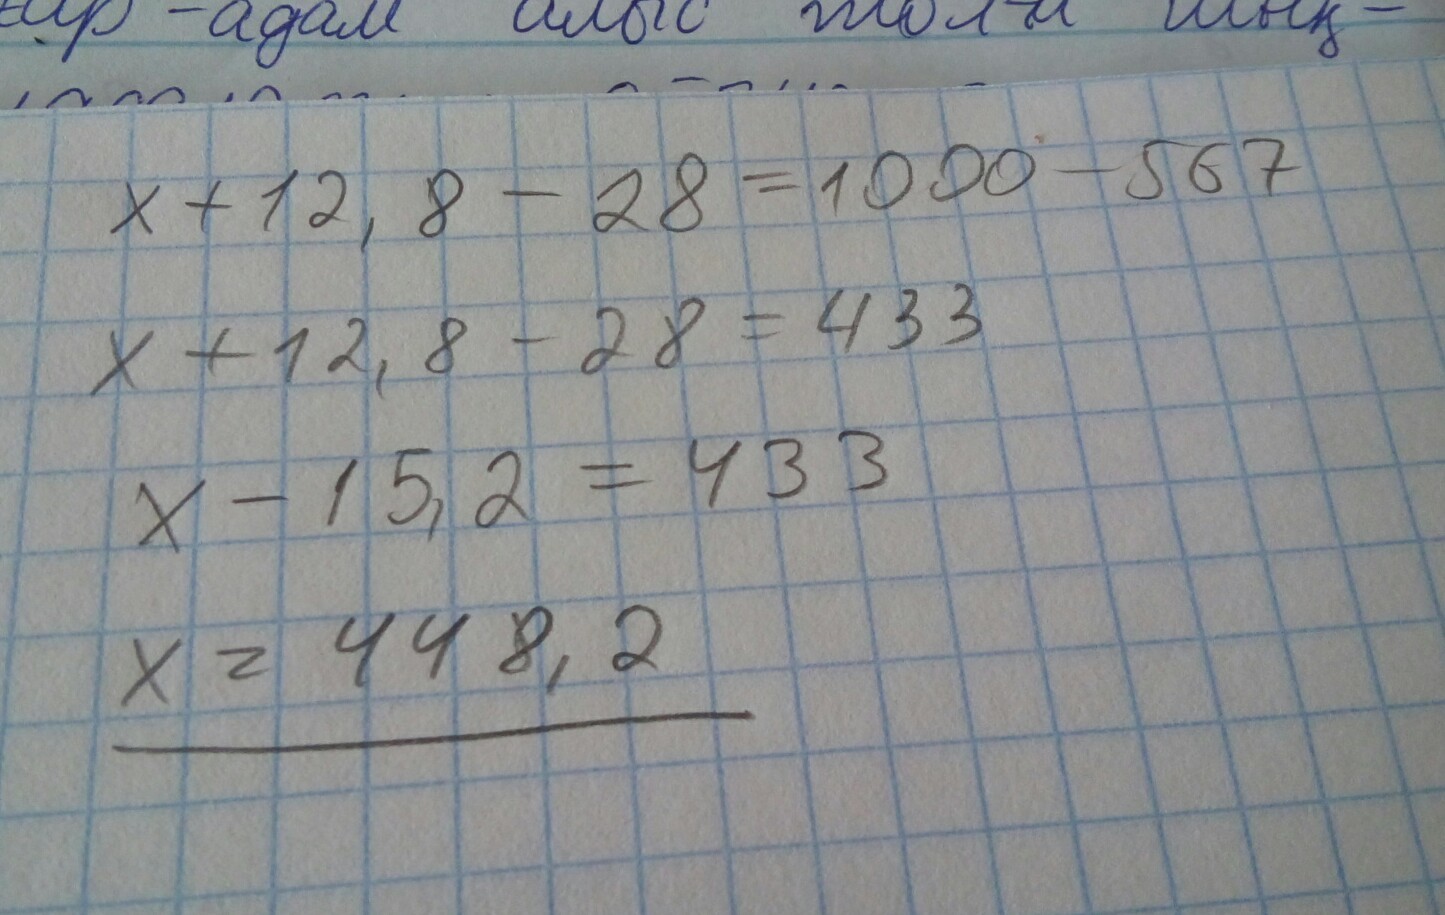 -адам алыс
x + 12,8 - 28 = 1000 - 567
x + 12,8 - 28 = 433
x - 15,2 = 433
x = 448,2